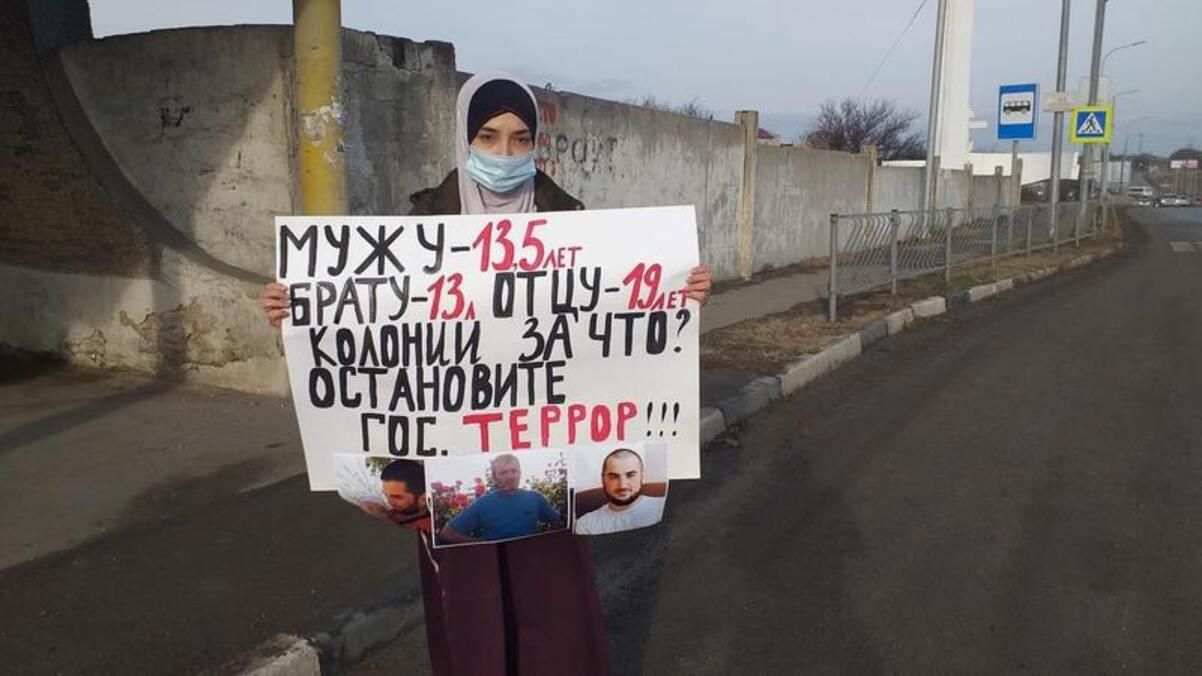 МУЖУ-13,5 ЛЕТ
БРАТУ-13Л ОТЦУ-19 ЛЕТ
КОЛОНИИ ЗА ЧТО?
ОСТАНОВИТЕ
ГОС. ТЕРРОР!!!